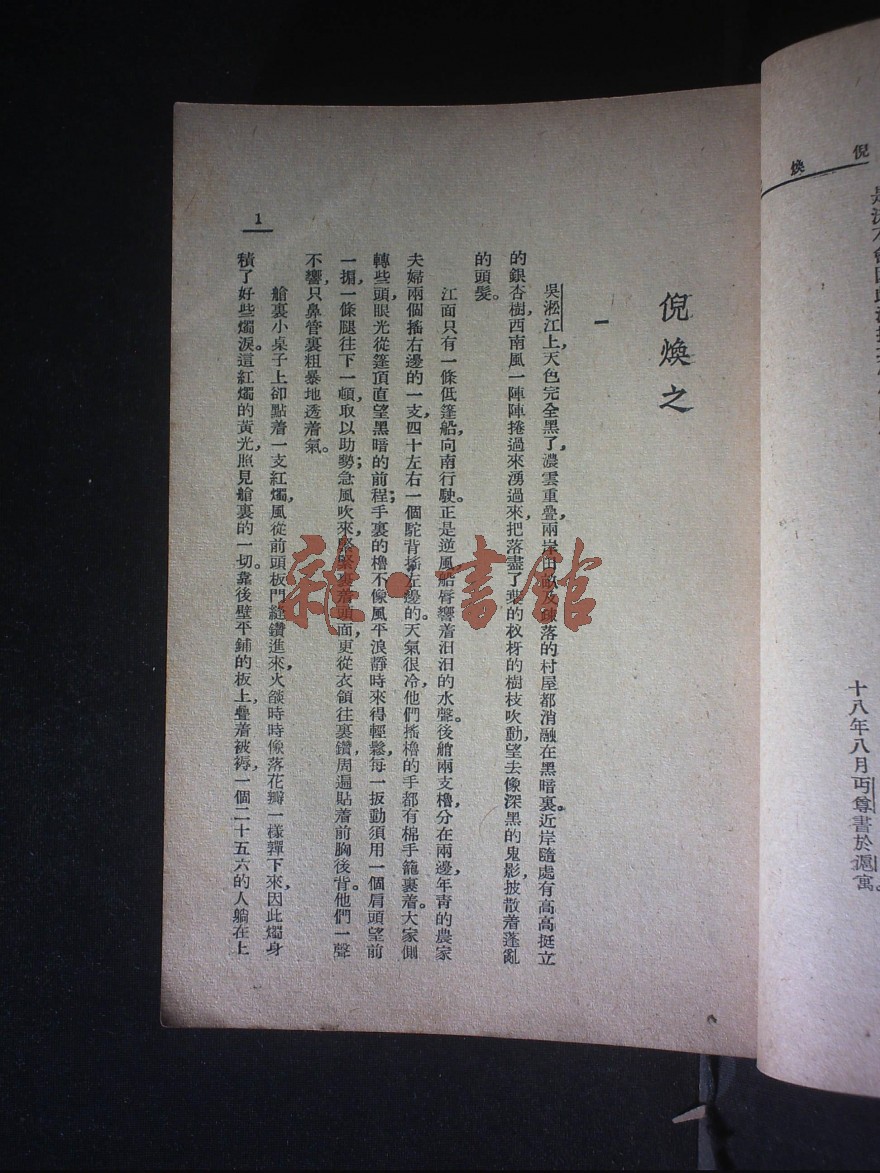 倪煥
十八年八月丏尊書於滬寓。
倪煥之
一
吳淞江上，天色完全黑了，濃雲重疊，兩岸田畝及疎落的村屋都消融在黑暗裏。近岸隨處有高高挺立
的銀杏樹，西南風一陣陣捲過來湧過來，把落盡了葉的杈枒的樹枝吹動，望去像深黑的鬼影，披散着蓬亂
的頭髮。
江面只有一條低篷船，向南行駛。正是逆風，船脣響着汩汩的水聲。後艄兩支櫓，分在兩邊，年青的農家
夫婦兩個搖右邊的一支，四十左右一個駝背搖左邊的。天氣很冷，他們搖櫓的手都有棉手籠裹着。大家側
轉些頭，眼光從篷頂直望黑暗的前程；手裏的櫓不像風平浪靜時來得輕鬆，每一扳動須用一個肩頭望前
一掮，一條腿往下一頓，取以助勢；急風吹來，緊緊裹着頭面，更從衣領往裏鑽，周遍貼着前胸後背。他們一聲
不響，只鼻管裏粗暴地透着氣。
艙裏小桌子上卻點着一支紅燭，風從前頭板門縫鑽進來，火燄時時像落花瓣一樣嚲下來，因此燭身
積了好些燭淚。這紅燭的黃光，照見艙裏的一切。靠後壁平鋪的板上，疊着被褥，一個二十五六的人躺在上
1
雜·書館